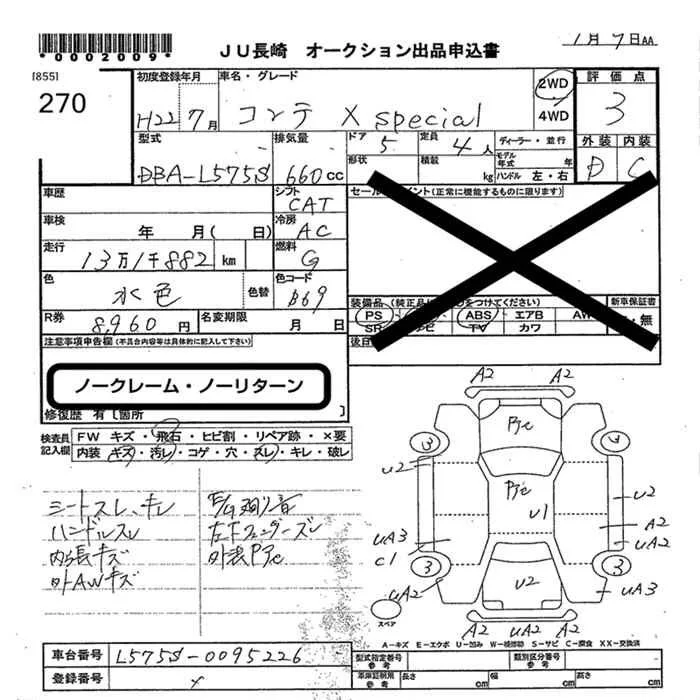 *0002009*
JU長崎 オークション出品申込書
1月7日AA
[855]
270
初度登録年月
H22 7月
車名・グレード
コンテ X special
2WD
4WD
評価点
3
型式
DBA-L575S
排気量
660cc
ドア
5
定員
4人
ディーラー・並行
モデル年式 年
形状
積載
kg
ハンドル 左・右
外装 内装
D C
車歴
シフト
CAT
車検
年 月( 日)
冷房
AC
走行
13万1千882 km
燃料
G
色
水色
色替
色コード
B69
R券
8,960円
名変期限
月 日
(正常に機能するものに限ります)
装備品
PS
ABS
エアB
AW
TV
カワ
新車保証書
無
注意事項申告欄(不具合内容等は具体的に記入して下さい)
ノークレーム・ノーリターン
修復歴 有[箇所 ]
検査員記入欄
FW キズ・飛石・ヒビ割・リペア跡・×要
内装 キズ・汚レ・コゲ・穴・スレ・キレ・破レ
シートスレ、キレ
ハンドルスレ
内張キズ
外AWキズ
左F フェンダーズレ
A2 A2
3 3
U2
U1
U2
A2
UA2
UA3
C1
3 3
UA2
U2
UA3
A2 UA2 A2
スペア
A-キズ E-エクボ U-凹み W-補修跡 S-サビ C-腐食 XX-交換済
車台番号
L575S-0095226
登録番号
型式指定番号
参考
類別区分番号
参考
車庫証明用
参考
長さ cm
幅 cm
高さ cm